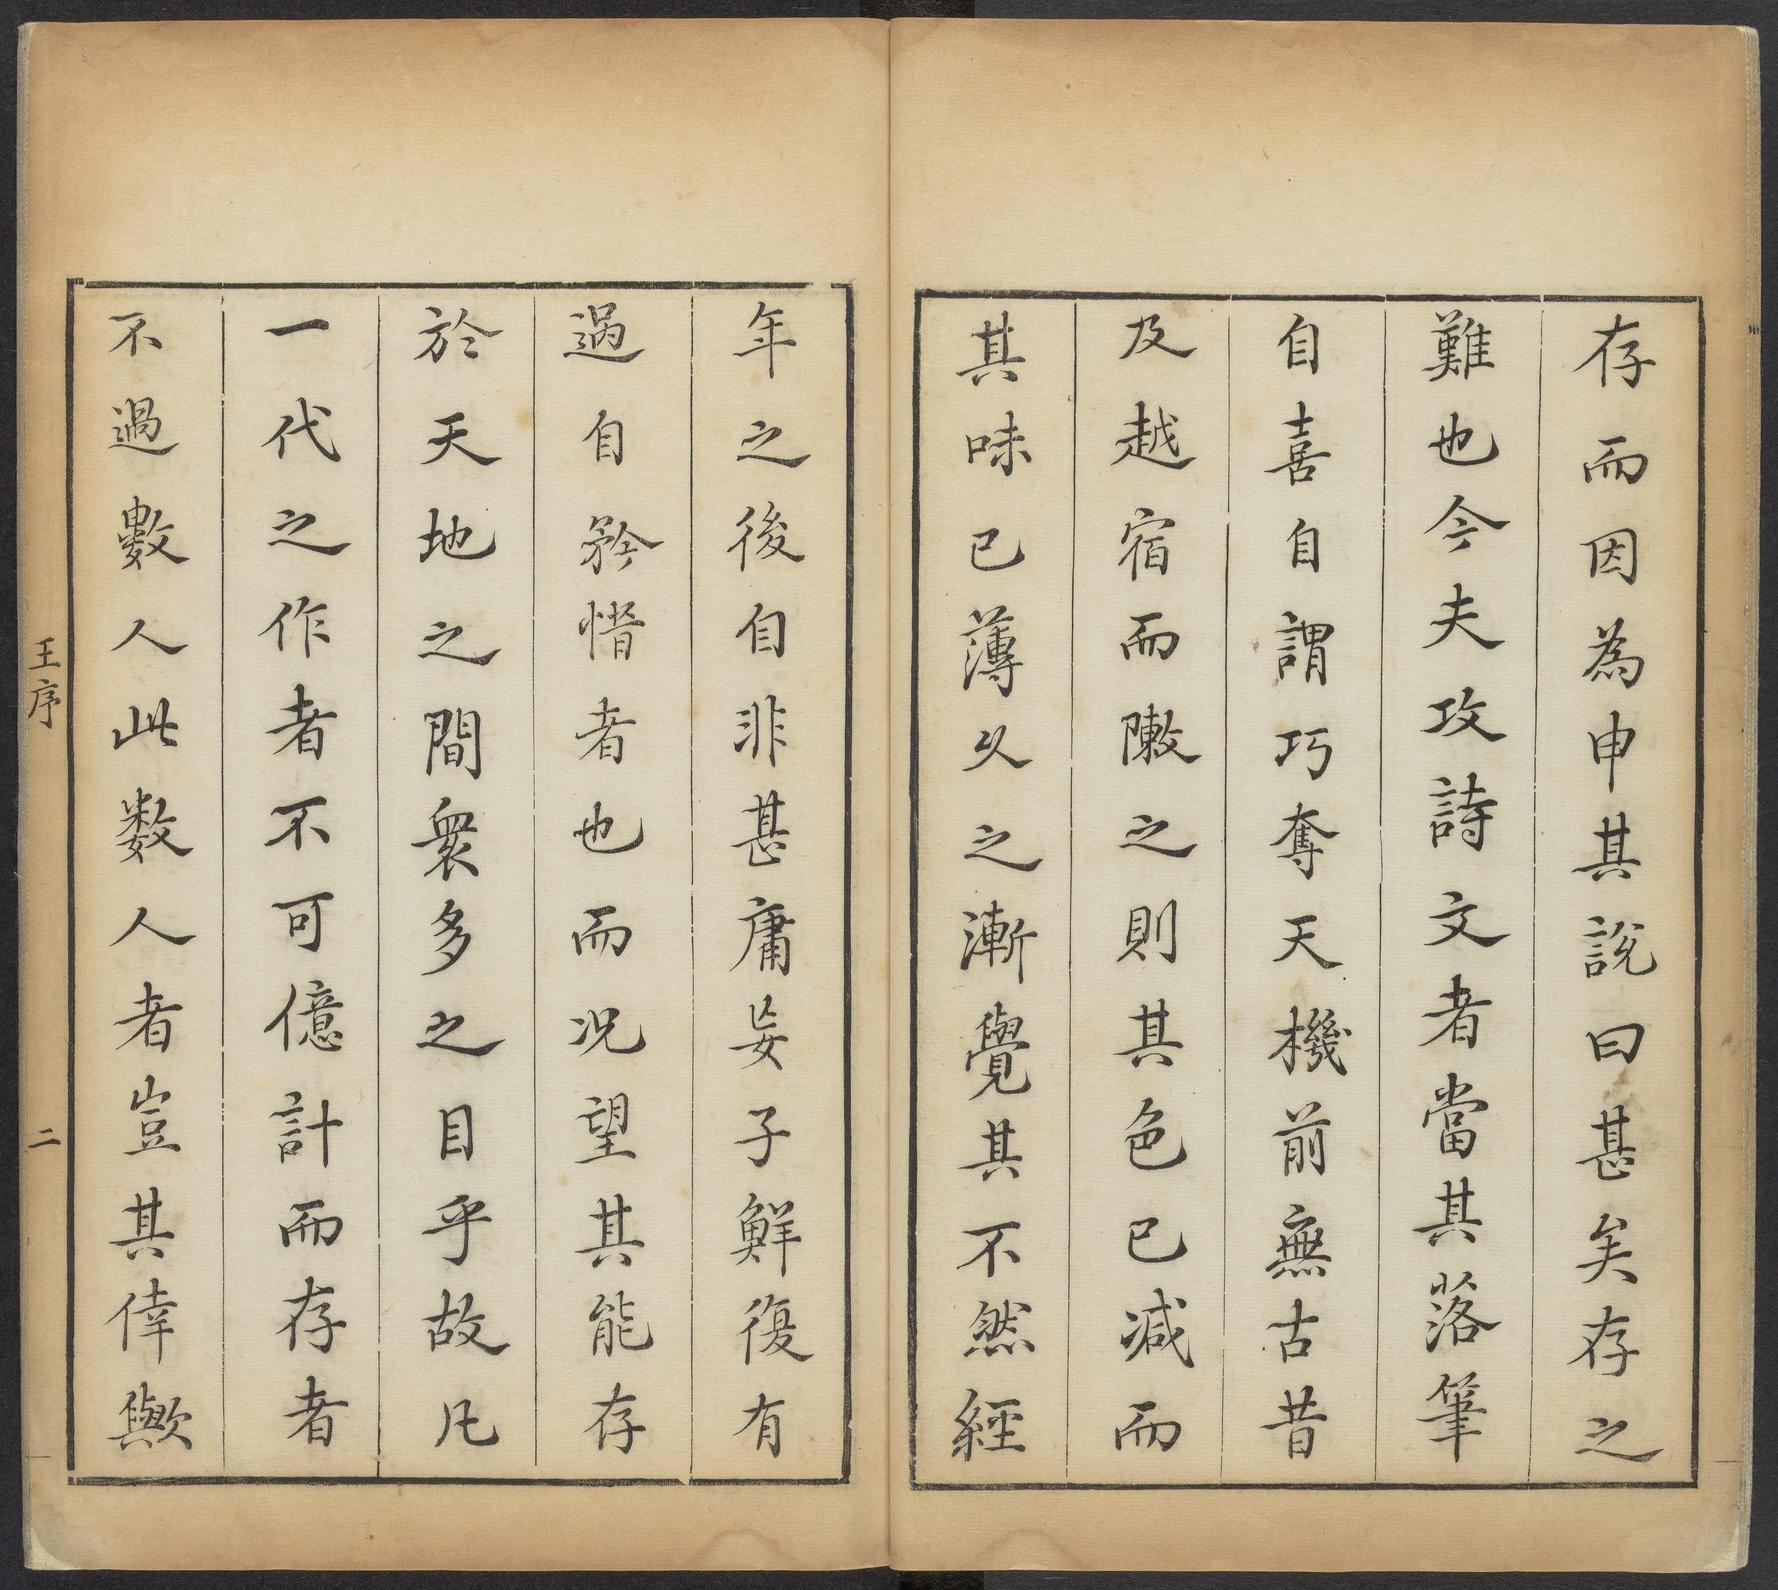 存而因為申其說曰甚矣存之
難也今夫攻詩文者當其落筆
自喜自謂巧奪天機前無古昔
及越宿而陳之則其色已减而
其味已薄久之漸覺其不然經
年之後自非甚庸妄子鮮復有
過自矜惜者也而况望其能存
於天地之間衆多之目乎故凡
一代之作者不可億計而存者
不過數人此数人者豈其倖歟
王序
二